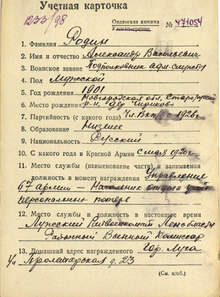 Учетная карточка
1233/98
Орденская книжка № 471054
Удостоверение
1. Фамилия Родин
2. Имя и отчество Александр Васильевич
3. Воинское звание Подполковник адм. службы
4. Пол Мужской
5. Год рождения 1901
6. Место рождения Новгородская обл. Старорусский
р-н
7. Партийность (с какого года) Чл. ВКП(б) 1926г.
8. Образование Низшее
9. Национальность Русский
10. С какого года в Красной Армии С мая 1920г.
11. Место службы (наименование части), и занимаемая
должность в момент награждения Управление
67 армии — Начальник отдела учета
персональных потерь
12. Место службы и должность в настоящее время
Лужский Райвоенкомат Ленобласти
Районный Военный Комиссар
13. Домашний адрес награжденного Гор. Луга
Пролетарская д. 23
(См. н/об.)